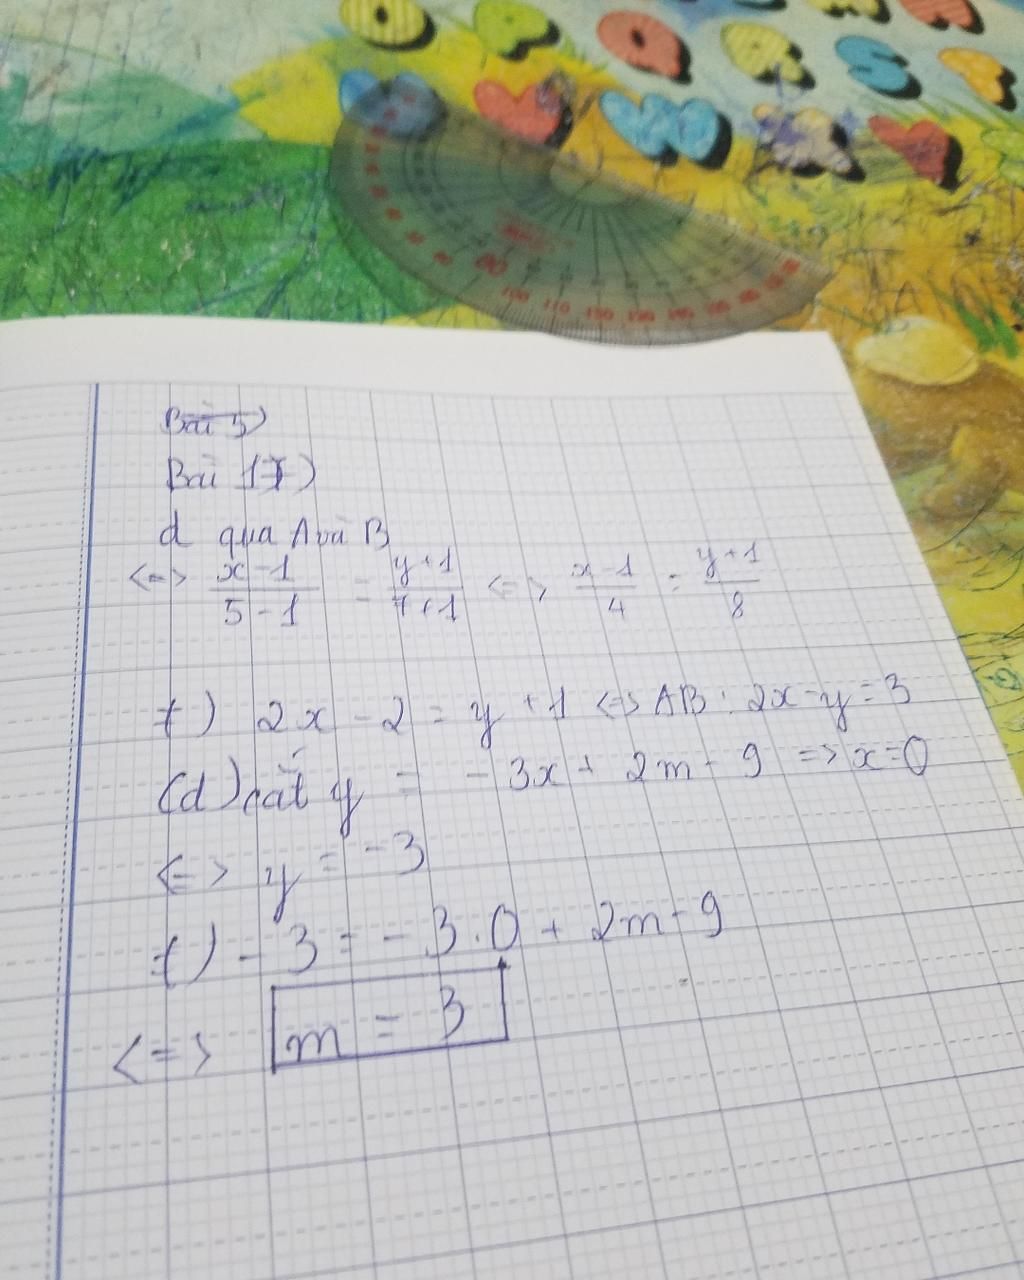 Bài 5)
Bài 17)
d qua A và B
<=> x-1 / 5-1 = y+1 / 7+1 <=> x-1 / 4 = y+1 / 8
+) 2x - 2 = y + 1 <=> AB : 2x - y = 3
(d) cắt y = -3x + 2m - 9 => x=0
<=> y = -3
+) -3 = -3.0 + 2m - 9
<=> m = 3